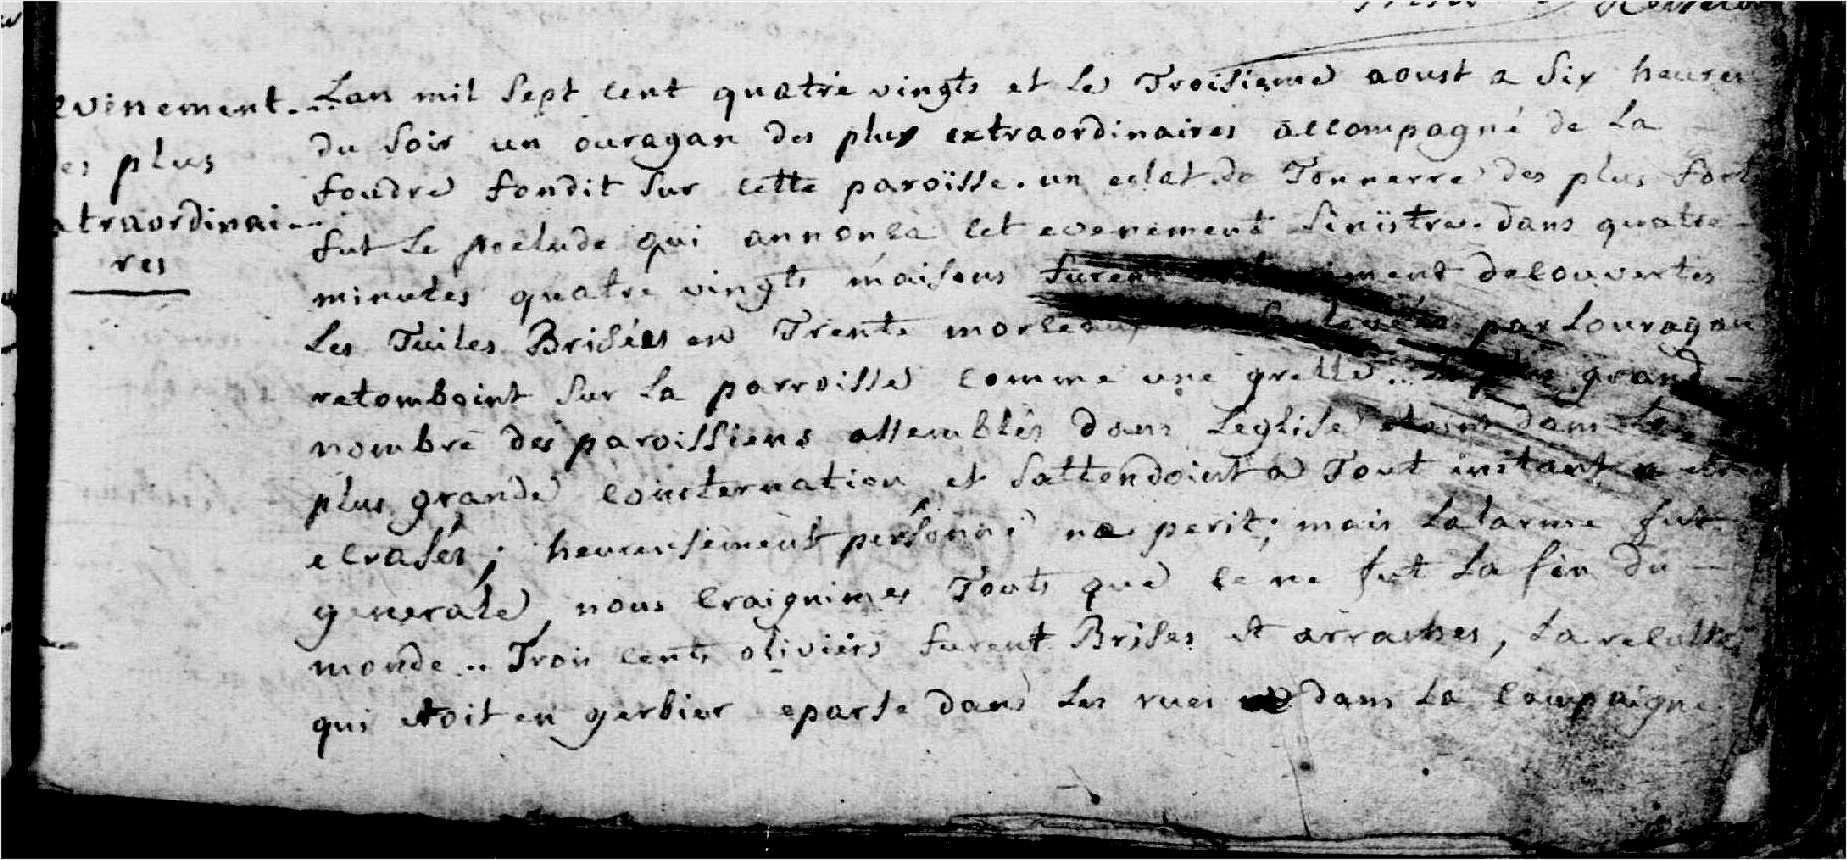 evinement
es plus
xtraordinai-
res
Lan mil sept cent quatre vingts et le Troisieme aoust a six heures
du soir un ouragan des plus extraordinaires accompagné de la
foudre fondit sur cette paroïsse. un eclat de Tonnerre des plus forts
fut le prelude qui annonca cet evenement sinistre. dans quatre
minutes quatre vingts maisons furent decouvertes
Les Tuiles Brisées en Trente morceaux par Louragan
retomboint sur la parroisse comme une grelle. Le plus grand
nombre des paroissiens assemblés dans Leglise etoint dans la
plus grande consternation et sattendoint a Tout instant a etre
ecrasés; heureusement personne ne perit; mais Lalarme fut
generale, nous craignimes Touts que ce ne fut La fin du
monde.. Trois cents oliviers furent Brises et arraches, La recolte
qui etoit en gerbier eparse dans les rues dans La campaigne